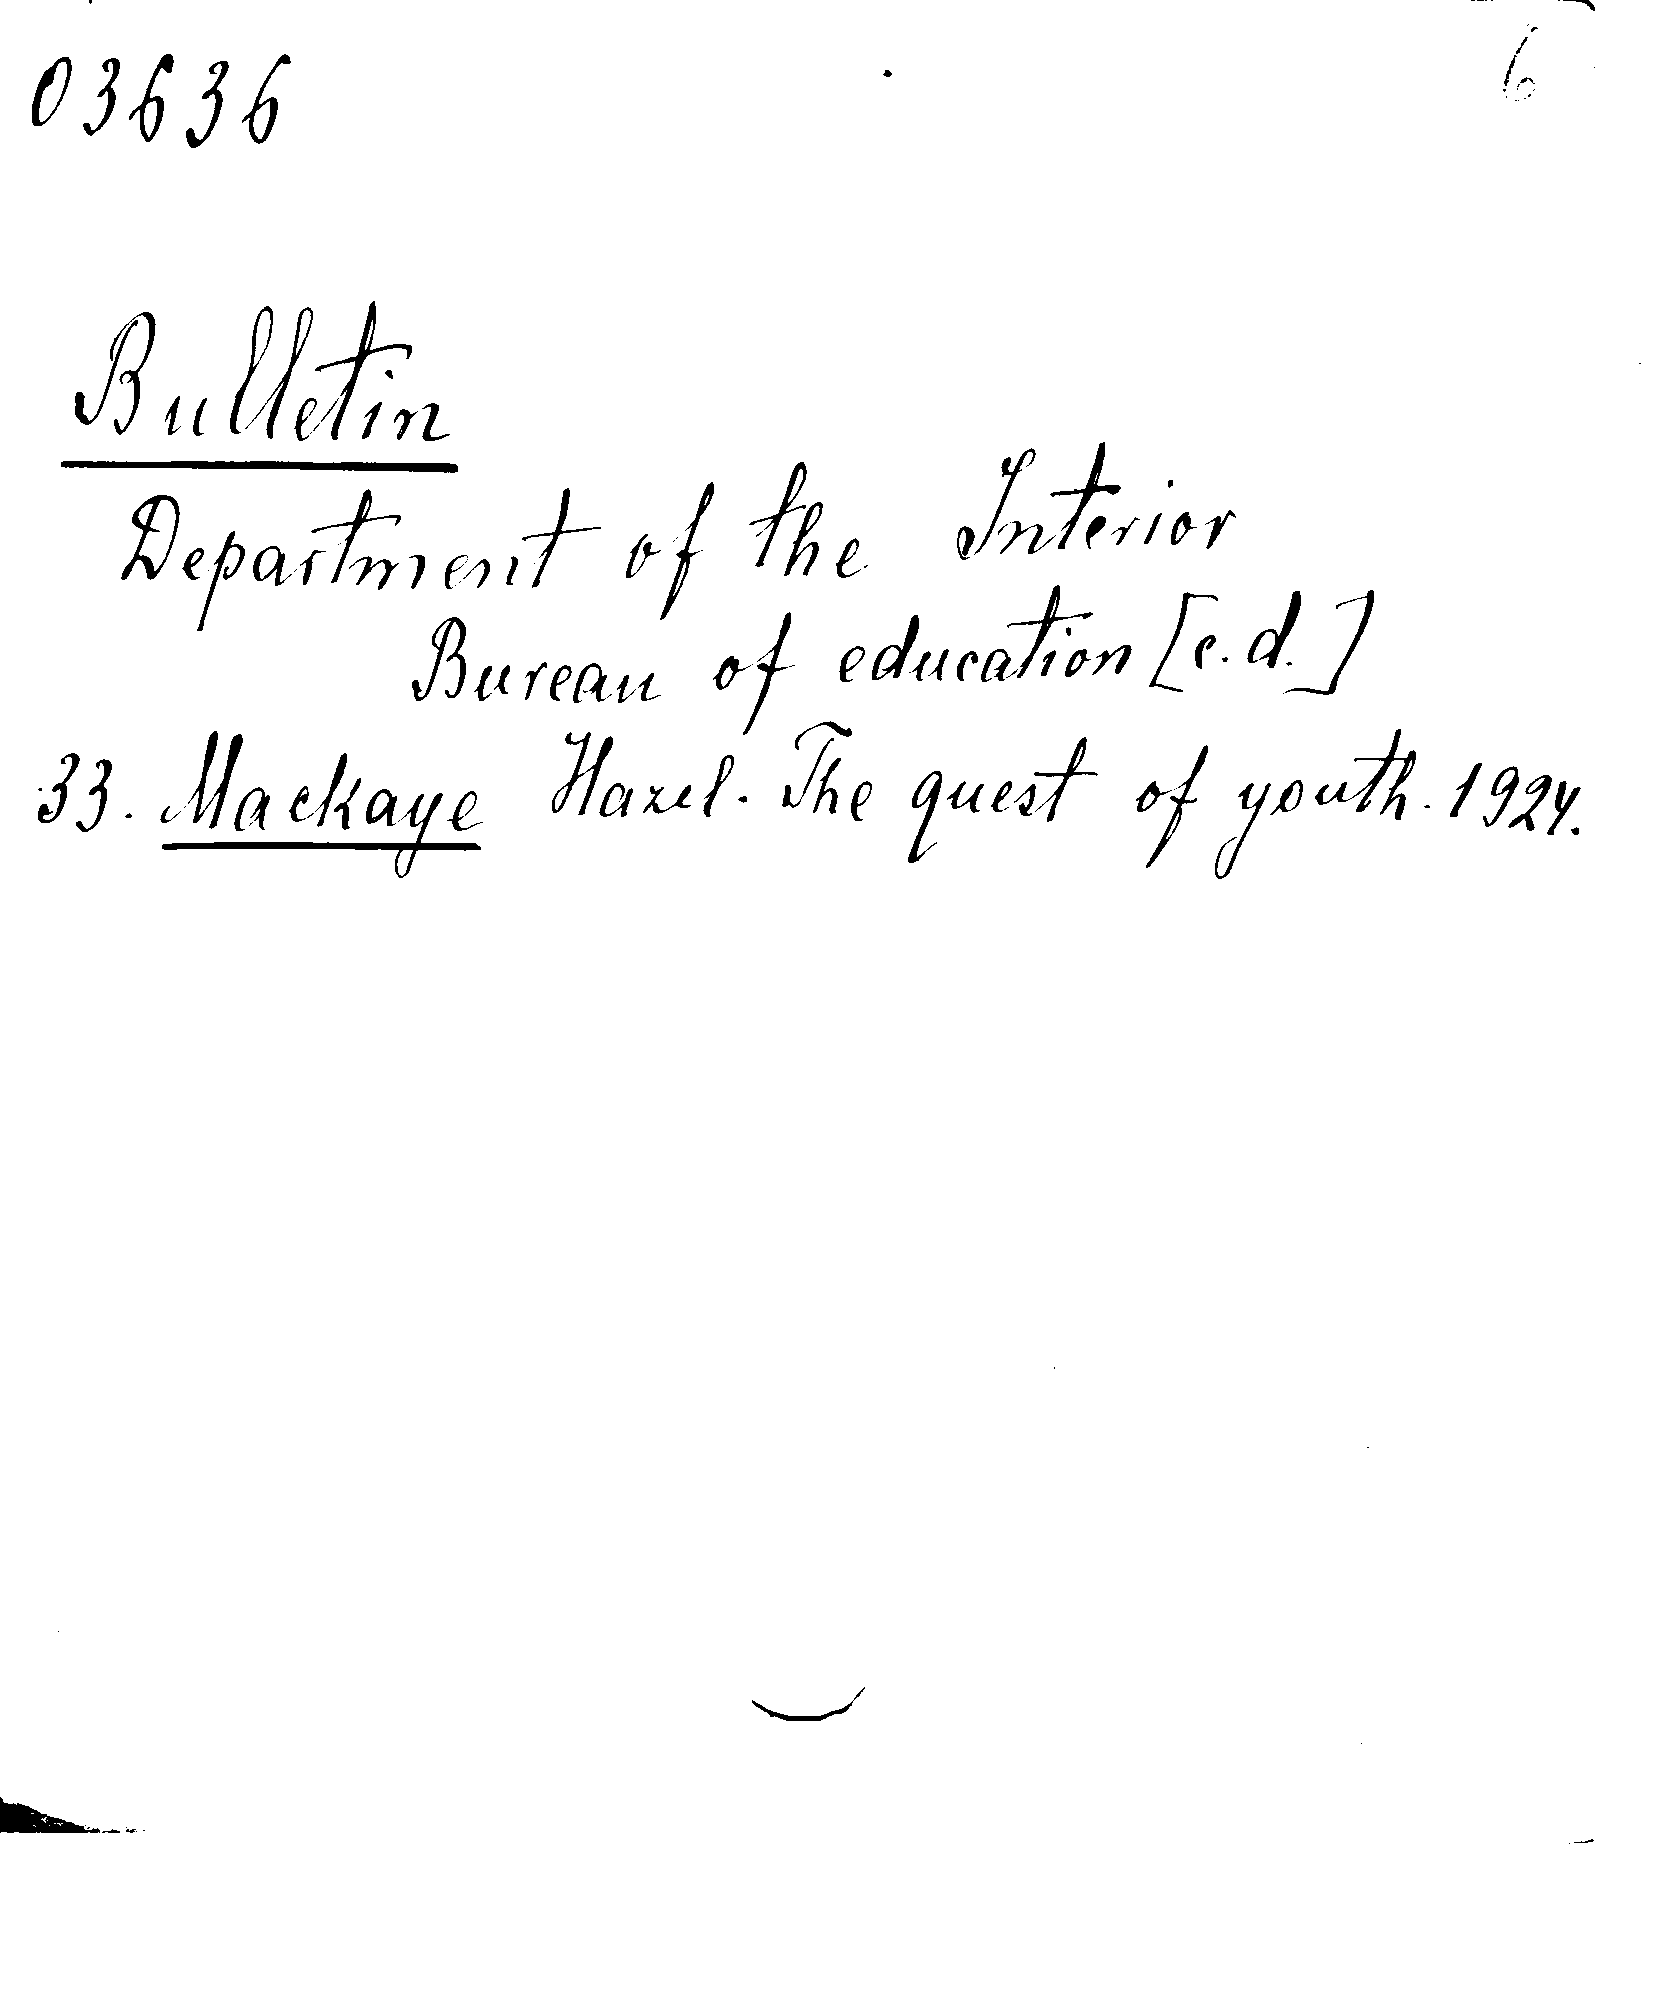 03636
6
Bulletin
Department of the Interior
Bureau of education [c.d.]
33. Mackaye Hazel. The quest of youth. 1924.